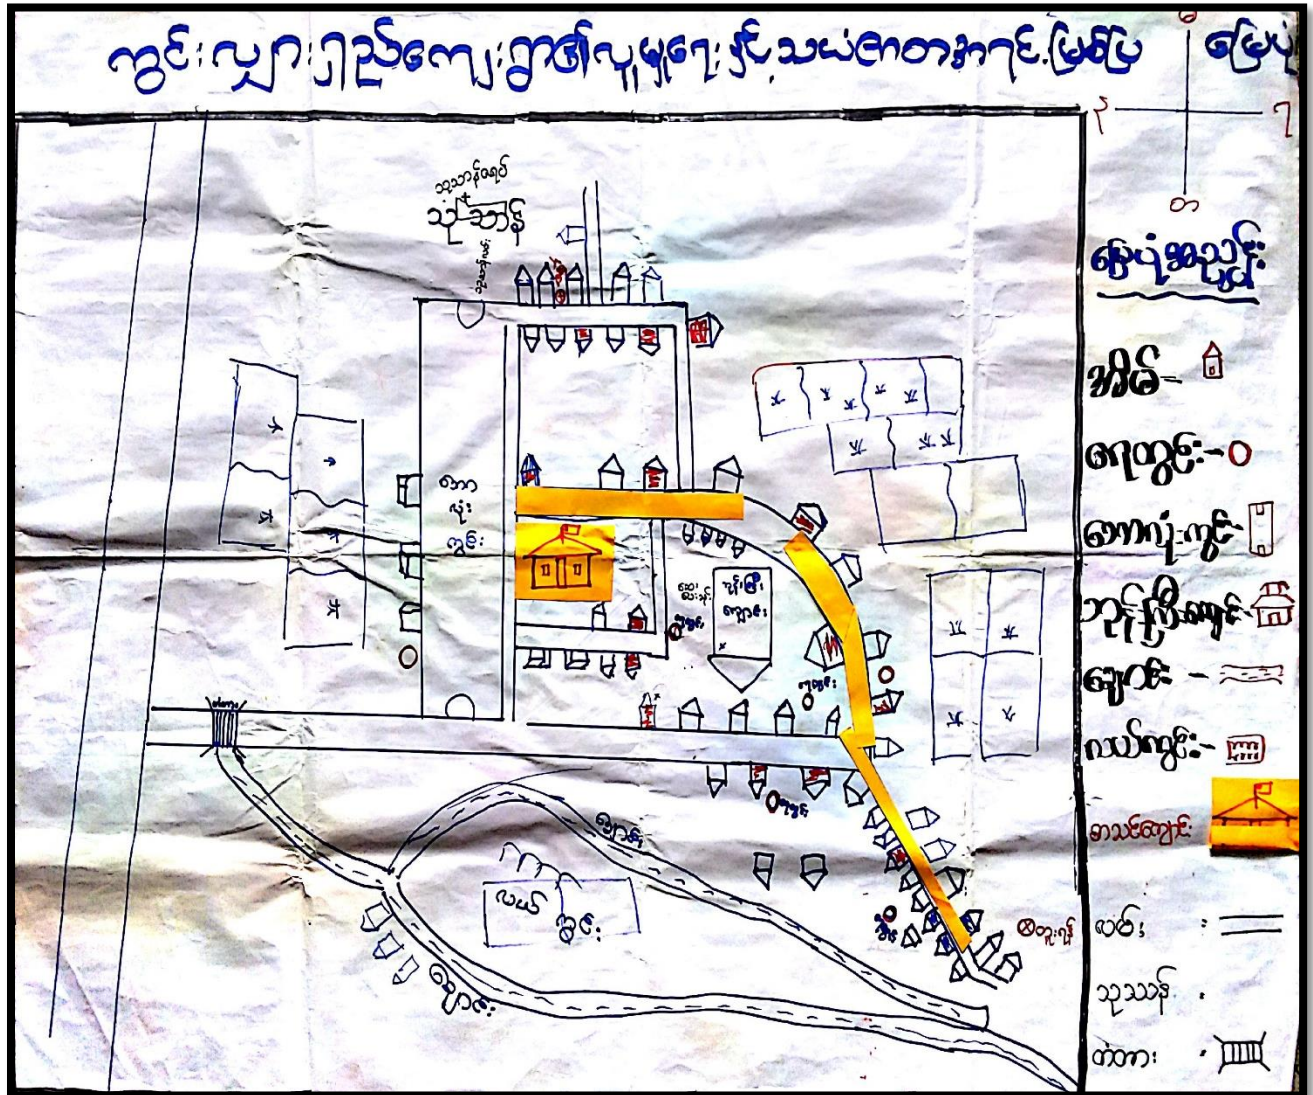 ကွင်းလျှားရှည်ကျေးရွာ၏လူမှုရေးနှင့်သယံဇာတအရင်းမြစ်ပြ မြေပုံ
မြေပုံအညွှန်း
အိမ်-
ရေတွင်း-
ဘောလုံးကွင်း-
ဘုန်းကြီးကျောင်း-
ချောင်း -
လယ်ကွင်း-
စာသင်ကျောင်း
လမ်း :
သုဿာန် :
တံတား :
သုသာန်ဇရပ်
သုသာန်
ဘော
လုံး
ကွင်း
ဘုန်းကြီး
ကျောင်း
ချောင်း
လယ်
ကွင်း
ချောင်း